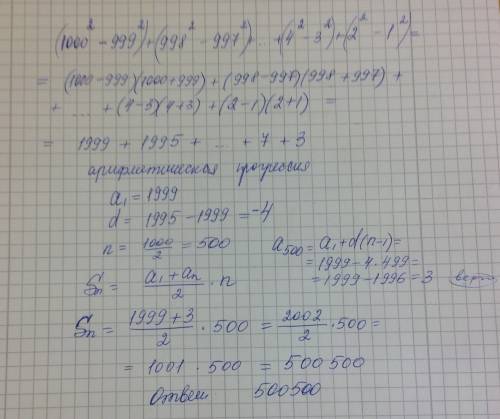 (1000² - 999²) + (998² - 997²) + ... + (4² - 3²) + (2² - 1²) =
= (1000-999)(1000+999) + (998-997)(998+997) +
+ ..... + (4-3)(4+3) + (2-1)(2+1) =
= 1999 + 1995 + ... + 7 + 3
арифметическая прогрессия
a₁ = 1999
d = 1995 - 1999 = -4
n = 1000/2 = 500
a₅₀₀ = a₁ + d(n-1) =
= 1999 - 4·499 =
= 1999 - 1996 = 3 верно
Sₙ = (a₁ + aₙ)/2 · n
Sₙ = (1999 + 3)/2 · 500 = 2002/2 · 500 =
= 1001 · 500 = 500 500
Ответ 500500